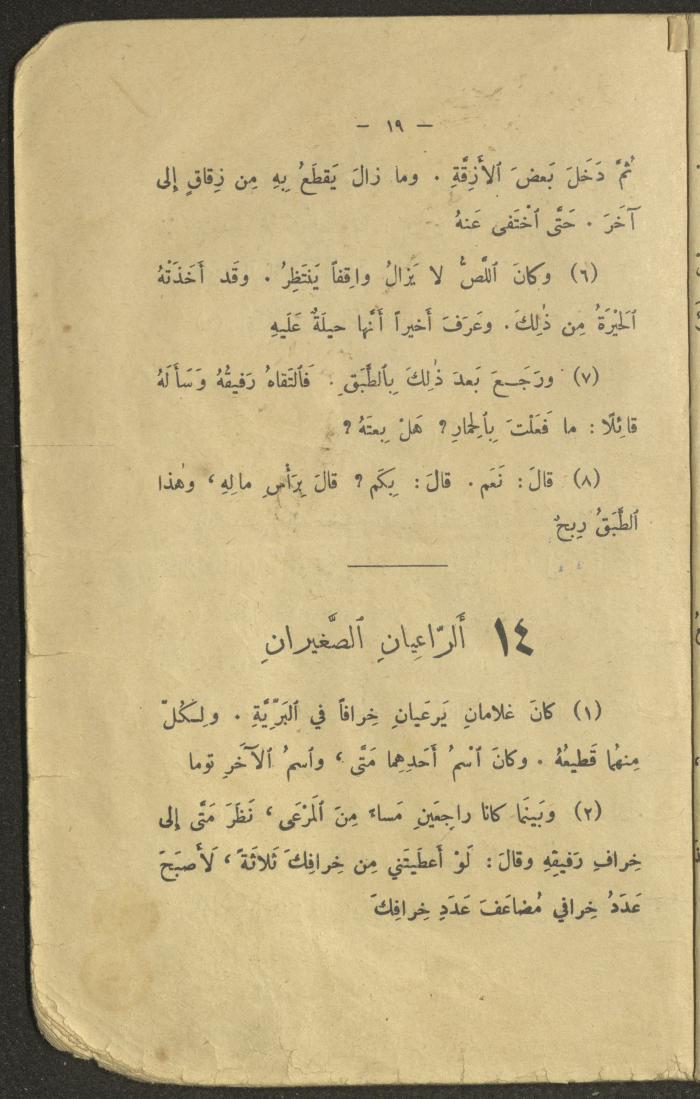 — ١٩ —
ثُمَّ دَخَلَ بَعضَ ٱلأَزِقَّةِ . وما زالَ يَقطَعُ بِهِ مِن زِقاقٍ إلى
آخَرَ . حَتَّى ٱخْتَفى عَنهُ
(٦) وكانَ ٱللِّصُّ لا يَزالُ واقِفاً يَنتَظِرُ . وقَد أَخَذَتْهُ
ٱلحَيْرَةُ مِن ذٰلِكَ . وعَرَفَ أَخيراً أَنَّها حيلَةٌ عَلَيهِ
(٧) ورَجَعَ بَعدَ ذٰلِكَ بِٱلطَّبَقِ . فَٱلتَقاهُ رَفيقُهُ وَسَأَلَهُ
قائِلًا : ما فَعَلْتَ بِٱلحِمارِ ؟ هَلْ بِعتَهُ ؟
(٨) قالَ : نَعَم . قالَ : بِكَم ؟ قالَ بِرَأْسِ مالِهِ ، وهٰذا
ٱلطَّبَقُ رِبحٌ
١٤ أَلرّاعِيانِ ٱلصَّغيرانِ
(١) كانَ غلامانِ يَرعَيانِ خِرافاً في ٱلبَرِّيَّةِ . ولِكُلٍّ
مِنهُما قَطيعُهُ . وكانَ ٱسْمُ أَحَدِهِما مَتَّى ، وٱسمُ ٱلآخَرِ توما
(٢) وبَينَما كانا راجِعَينِ مَساءً مِنَ ٱلمَرْعَى ، نَظَرَ مَتَّى إلى
خِرافِ رَفيقِهِ وقالَ : لَوْ أَعطَيتَني مِن خِرافِكَ ثَلاثَةً ، لَأَصبَحَ
عَدَدُ خِرافي مُضاعَفَ عَدَدِ خِرافِكَ